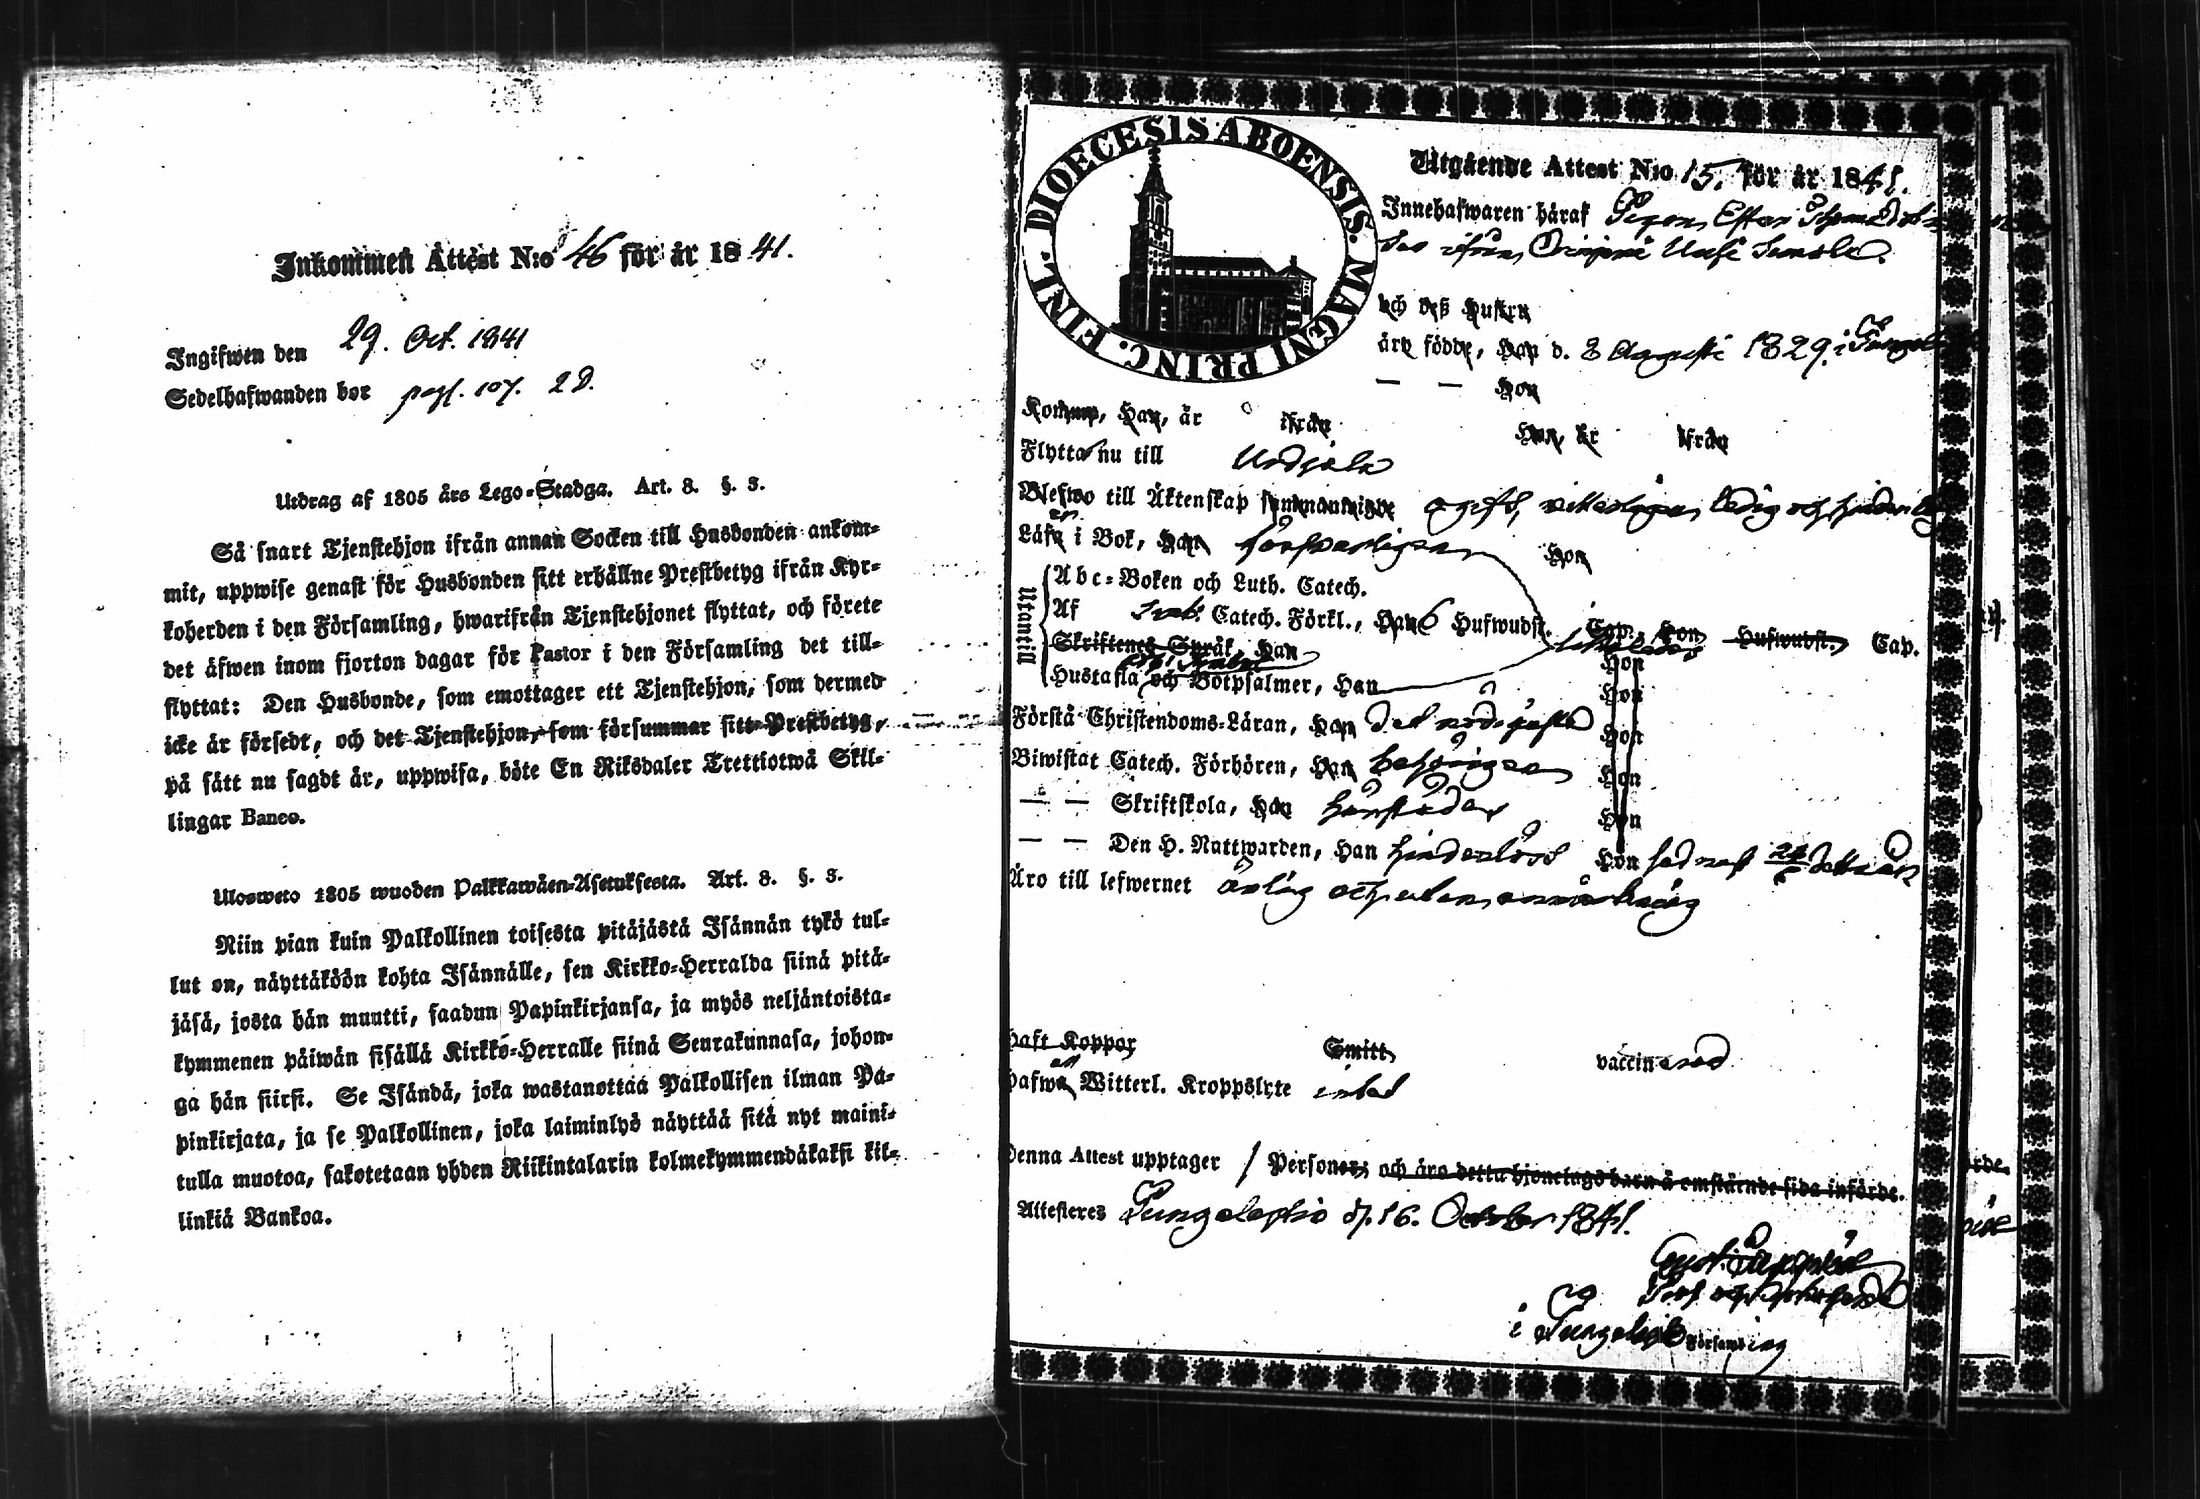 Inkommen Attest N:o 46 för år 1841.
Ingifwen den 29. Oct. 1841
Sedelhafwanden bor pag. 107. 2 D.
Utdrag af 1805 års Lego-Stadga. Art. 8. §. 3.
Så snart Tjenstehjon ifrån annan Socken till Husbonden ankom-
mit, uppwise genast för Husbonden sitt erhållne Prestbetyg ifrån Kyr-
koherden i den Församling, hwarifrån Tjenstehjonet flyttat, och förete
det äfwen inom fjorton dagar för Pastor i den Församling det till-
flyttat: Den Husbonde, som emottager ett Tjenstehjon, som dermed
icke är försedt, och det Tjenstehjon, som försummar sitt Prestbetyg,
på sätt nu sagdt är, uppwisa, böte En Riksdaler Trettiotwå Skil-
lingar Banco.
Ulosweto 1805 wuoden Palkkawäen-Asetuksesta. Art. 8. §. 3.
Niin pian kuin Palkollinen toisesta pitäjästä Isännän tykö tul-
lut on, näyttäköön kohta Isännälle, sen Kirkko-Herralda siinä pitä-
jäsä, josta hän muutti, saadun Papinkirjansa, ja myös neljäntoista-
kymmenen päiwän sisällä Kirkko-Herralle siinä Seurakunnasa, johon-
ga hän siirsi. Se Isändä, joka wastanottaa Palkollisen ilman Pa-
pinkirjata, ja se Palkollinen, joka laiminlyö näyttää sitä nyt maini-
tulla muotoa, sakotetaan yhden Riikintalarin kolmekymmendäkaksi kil-
linkiä Bankoa.
DIOECESIS ABOENSIS. MAGNI PRINC. FINL.
Utgående Attest N:o 15. för år 1841.
Innehafwaren häraf Pigan
och deß Hustru
äro födde, Han d. 8 Augusti 1829. i
— — Hon
Komne, Han, är ifrån Hon, är ifrån
Flytta nu till Urdjala
Blefwo till Äktenskap sammanwigde ogift, ledig och
Läsa i Bok, Han försvarligen Hon
Utantill
Abc-Boken och Luth. Catech.
Af Catech. Förkl., Han 6 Hufwudst. Cap., Hon Hufwudst. Cap.
Skriftenes Språk, Han Hon
Hustafla och Botpsalmer, Han Hon
Förstå Christendoms-Läran, Han det nödigaste Hon
Biwistat Catech. Förhören, Han behörigen Hon
— — Skriftskola, Han härstädes Hon
— — Den H. Nattwarden, Han hinderlöst Hon
Äro till lefwernet ärlig och utan anmärkning
Haft Koppor Smitt vaccinerad
Hafwa Witterl. Kroppslyte intet
Denna Attest upptager 1 Personer; och äro detta hjonelags barn å omstående sida införde.
Attesteres Pungalaitio d. 16. October 1841.
Gust.
i Församling